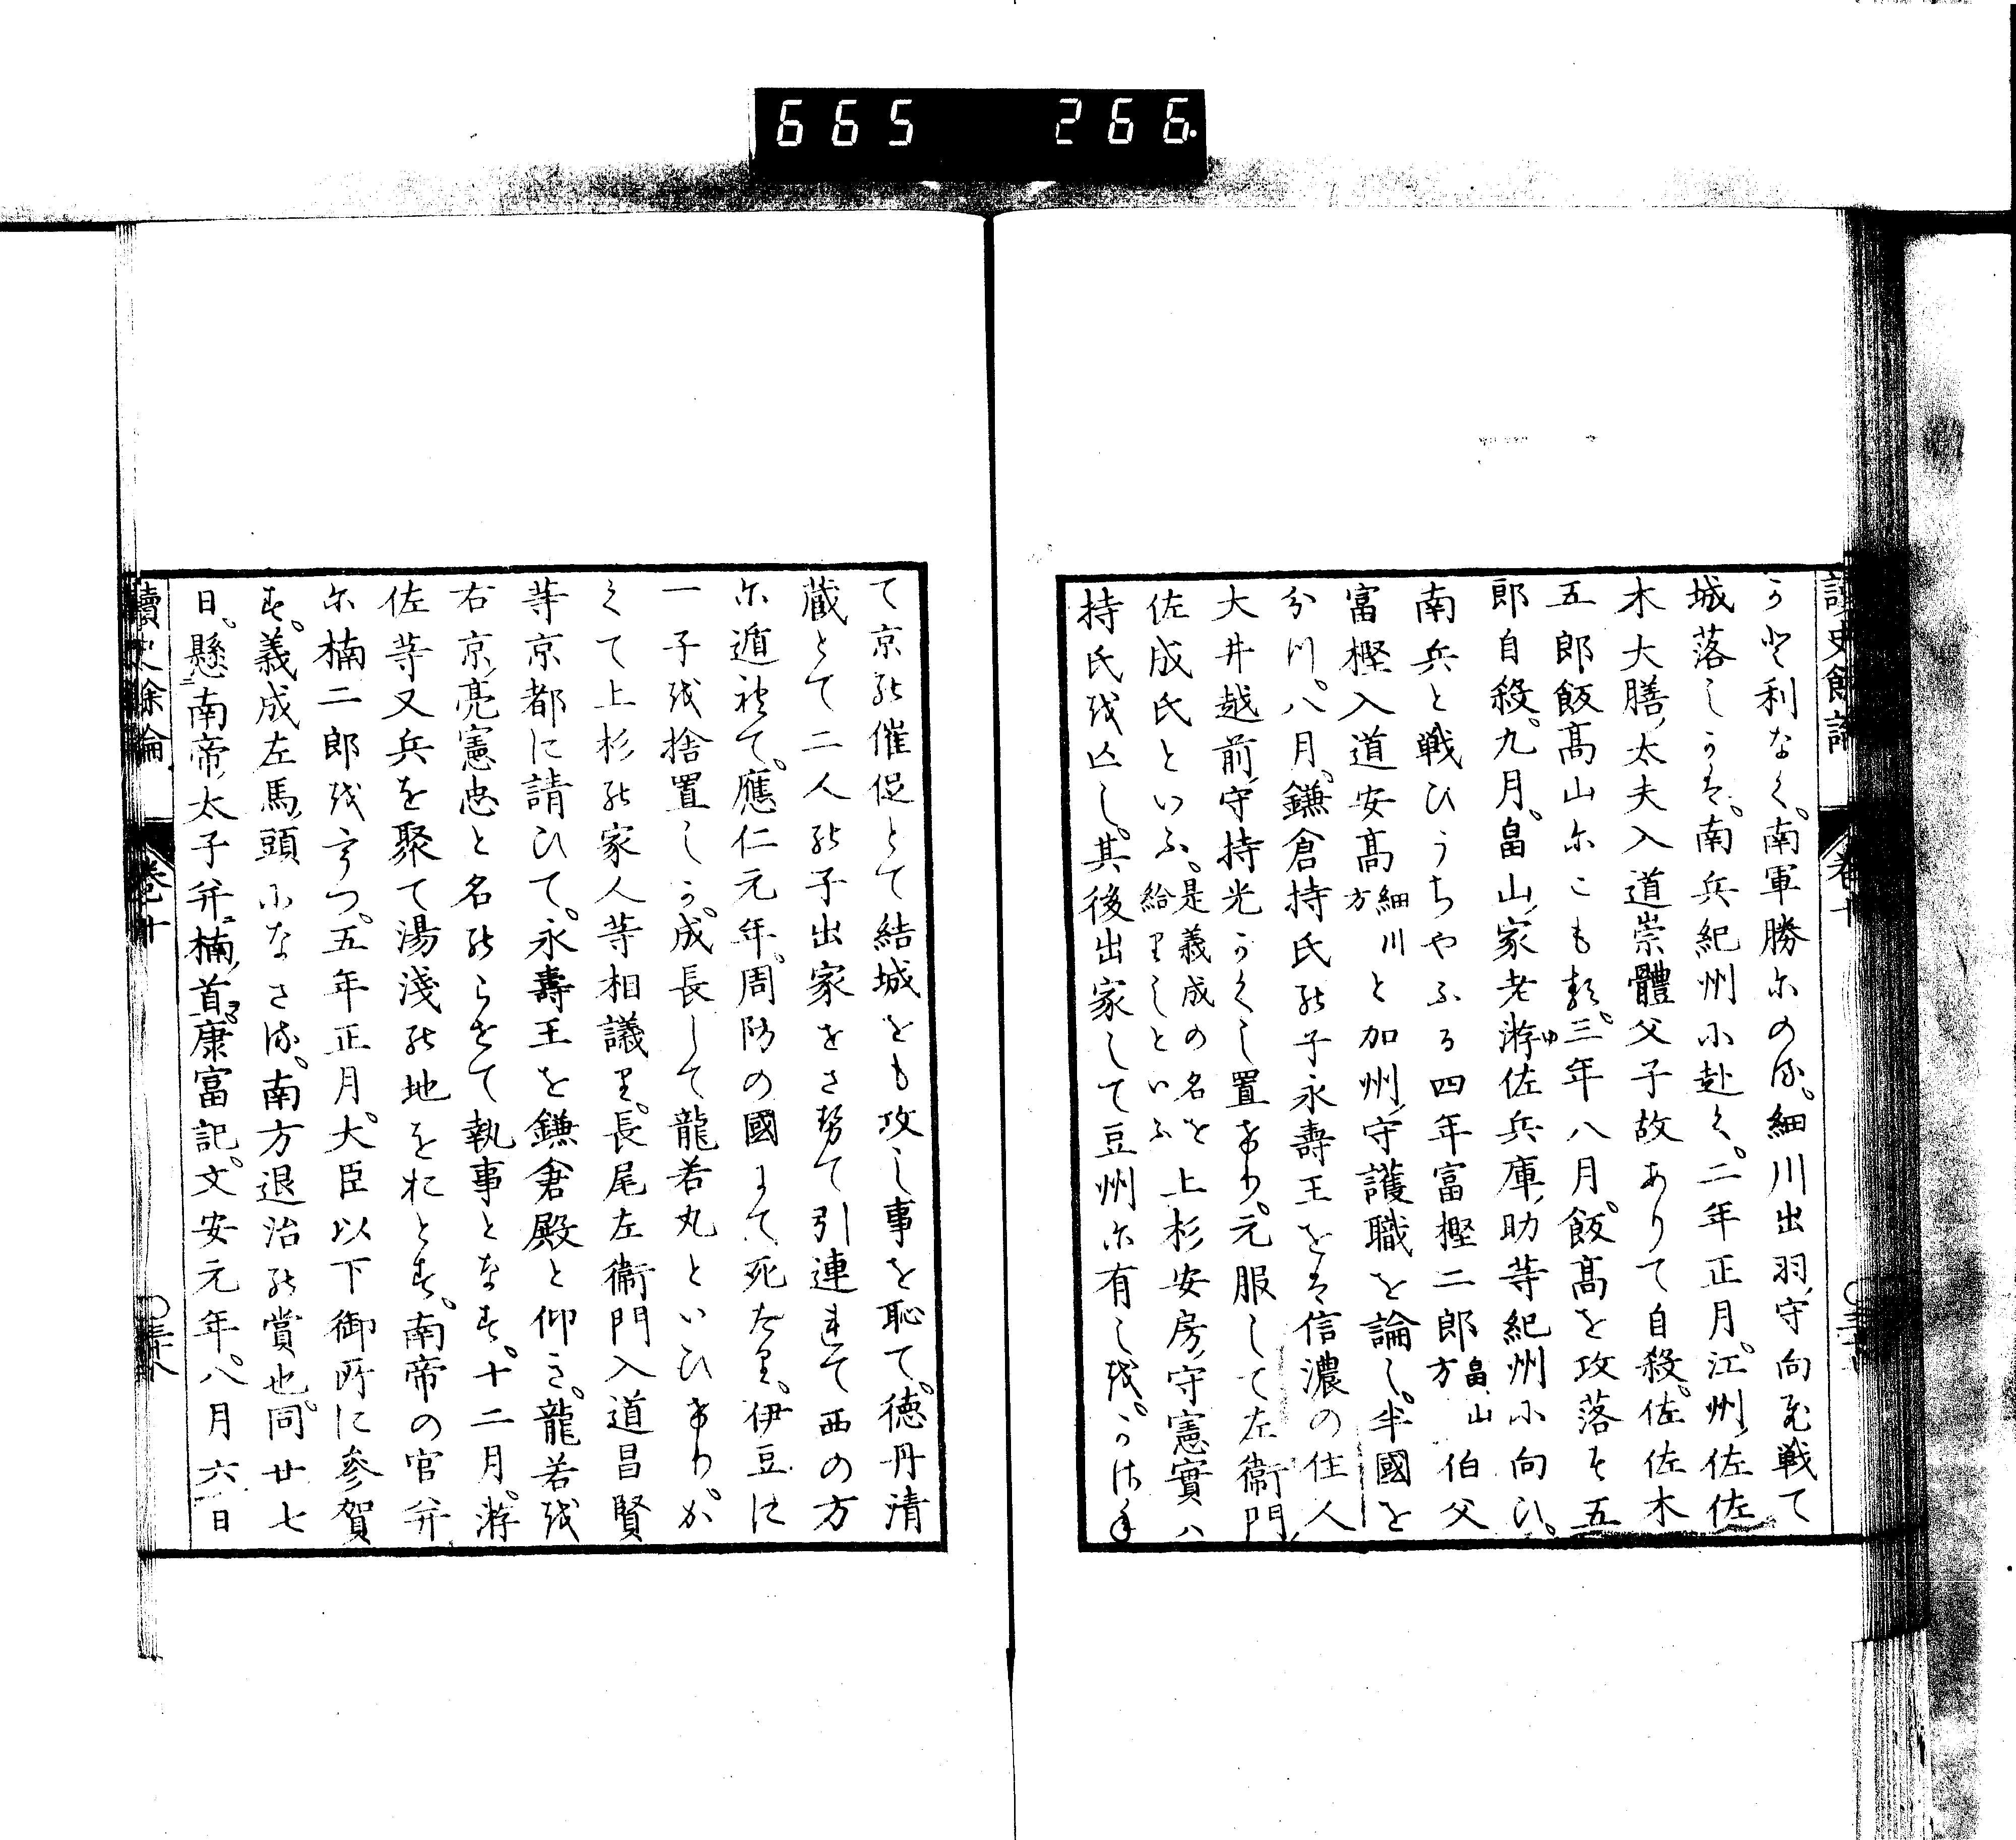 665 266.
讀史餘論 卷十
うど利なく。南軍勝尓のる。細川出羽守向ひ戦て
城落しうバ。南兵紀州小赴く。二年正月。江州佐佐
木大膳太夫入道崇體父子故ありて自殺。佐佐木
五郎飯髙山尓こもる。三年八月。飯髙を攻落す五
郎自殺。九月。畠山家老游佐兵庫助等紀州小向ひ。
南兵と戦ひうちやふる四年富樫二郎畠山方伯父
富樫入道安髙細川方と加州守護職を論し。半國を
分つ。八月。鎌倉持氏能子永壽王をば信濃の住人
大井越前守持光うくし置けり。元服して左衞門
佐成氏といふ。是義成の名を給りしといふ上杉安房守憲實ハ
持氏を亡し。其後出家して豆州尓有しを。うね
て京能催促とて結城をも攻し事を恥て。徳丹清
蔵とて二人能子出家をさ勢て引連連て西の方
尓遁れて。應仁元年。周防の國にて死たり。伊豆に
一子を捨置しう。成長して龍若丸といひけり。か
くて上杉能家人等相議り。長尾左衞門入道昌賢
等京都に請ひて。永壽王を鎌倉殿と仰き。龍若を
右京亮憲忠と名のらせて執事となす。十二月。游
佐等又兵を聚て湯淺能地をおとす。南帝の官并
尓楠二郎をうつ。五年正月。大臣以下御所に參賀
す。義成左馬頭小なさる。南方退治能賞也。同廿七
日。懸南帝太子并楠首康富記。文安元年。八月六日
讀史餘論 卷十